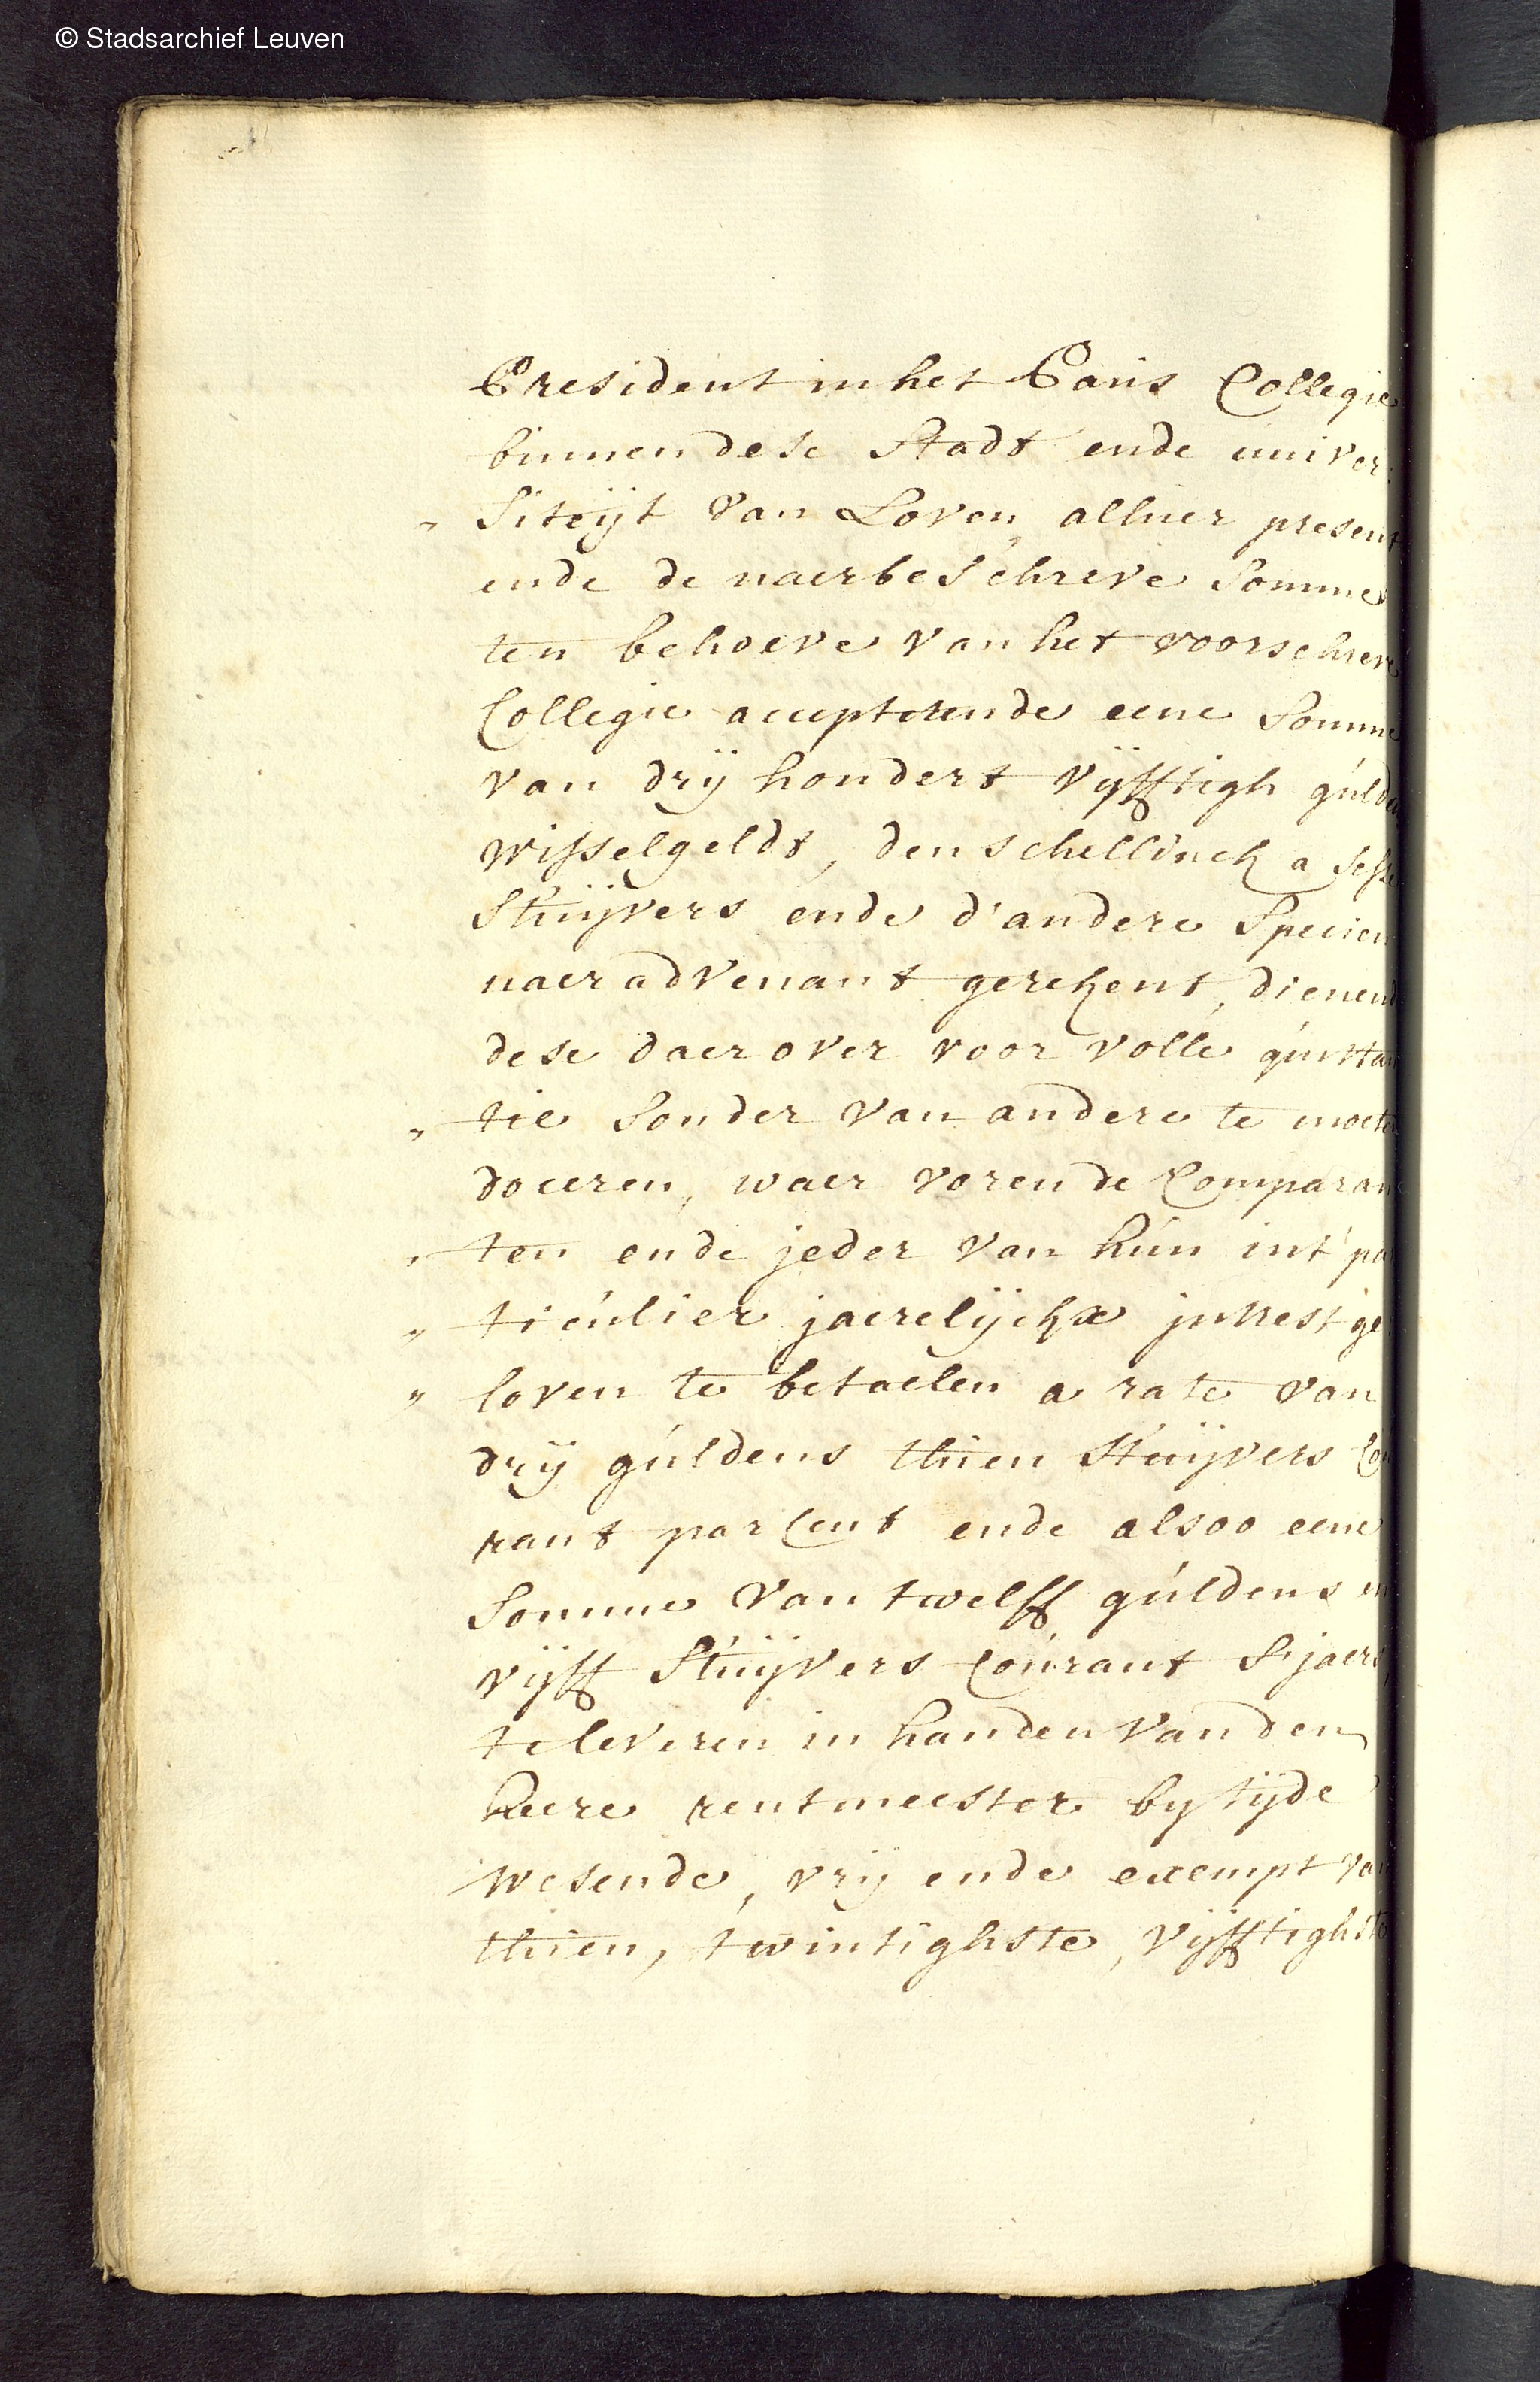 © Stadsarchief Leuven
President in het Paus Collegie
binnen dese Stadt ende univer:
„ siteÿt van Loven, alhier present
ende de naerbeschreve Somme
ten behoeve van het voorschreve
Collegie accepterende eene Somme
van drÿ hondert vÿfftigh gulde
wisselgeldt, den schellinck a sesse
Stuÿvers ende d'andere Specien
naer advenant gerekent, dienend
dese daer over voor volle quittan
„ tie sonder van andere te moete
doceren, waer voren de Comparan
„ ten ende jeder van hun int' pa
„ ticulier jaerelÿckx intrest ge
„ loven te betaelen a rate van
drÿ guldens thien Stuÿvers Cou
rant par Cent ende alsoo eene
Somme van twelff guldens en
vÿff Stuÿvers Courant S'jaers,
te leveren in handen van den
heere rentmeester by tÿde
wesende, vrÿ ende exempt van
thien, twintighste, vÿfftighste